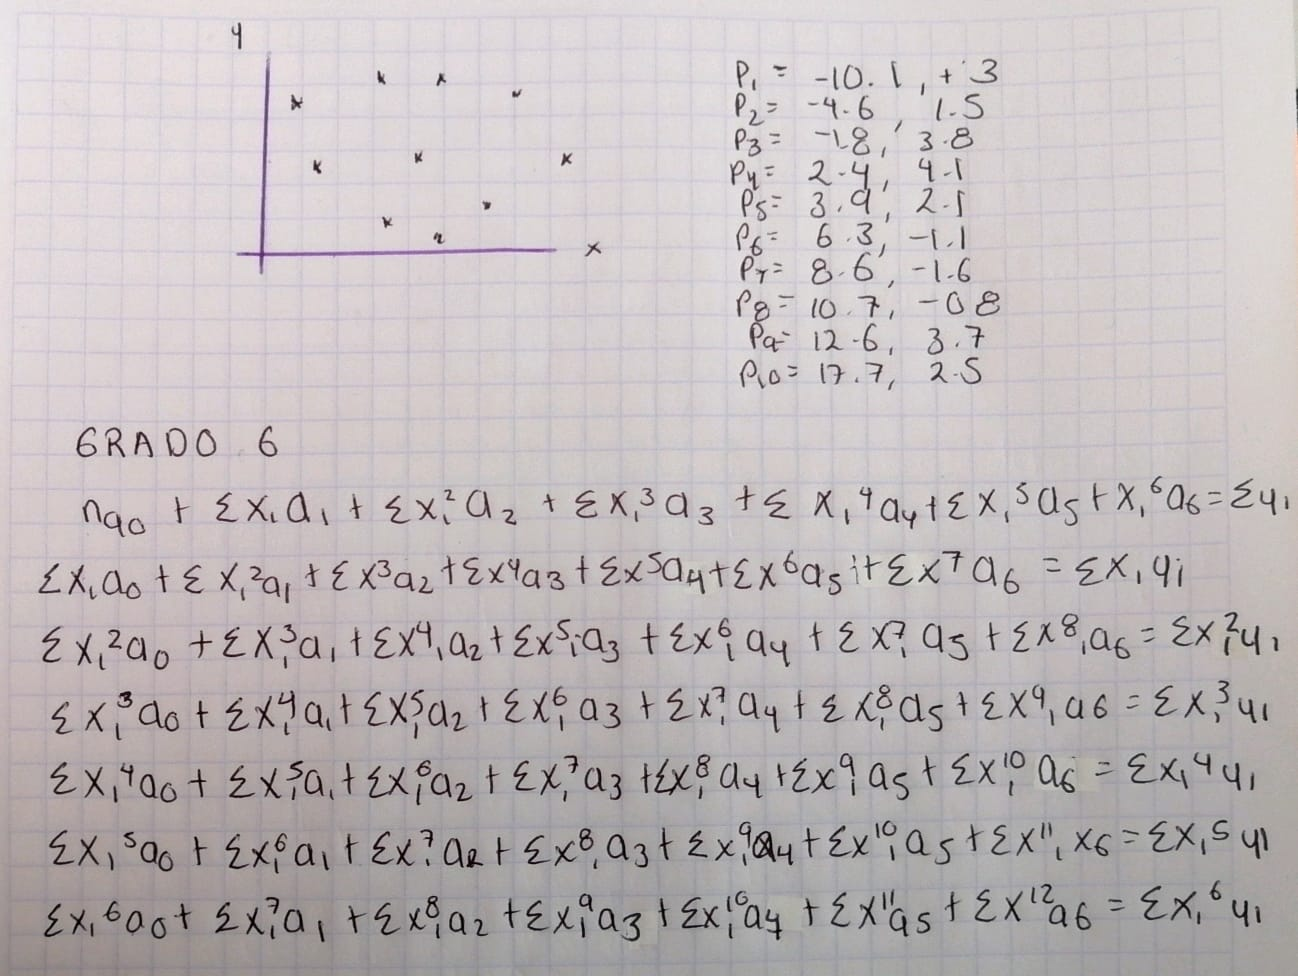 y
x
P₁ = -10.1, +3
P₂= -4.6, 1.5
P₃= -1.8, 3.8
P₄= 2.4, 4.1
P₅= 3.9, 2.1
P₆= 6.3, -1.1
P₇= 8.6, -1.6
P₈= 10.7, -0.8
P₉= 12.6, 3.7
P₁₀= 17.7, 2.5
GRADO 6
na₀ + Σxᵢa₁ + Σxᵢ²a₂ + Σxᵢ³a₃ + Σxᵢ⁴a₄ + Σxᵢ⁵a₅ + xᵢ⁶a₆ = Σyᵢ
Σxᵢa₀ + Σxᵢ²a₁ + Σx³a₂ + Σx⁴a₃ + Σx⁵a₄ + Σx⁶a₅ + Σx⁷a₆ = Σxᵢyᵢ
Σxᵢ²a₀ + Σxᵢ³a₁ + Σx⁴ᵢa₂ + Σx⁵ᵢa₃ + Σx⁶ᵢa₄ + Σx⁷ᵢa₅ + Σx⁸ᵢa₆ = Σxᵢ²yᵢ
Σxᵢ³a₀ + Σxᵢ⁴a₁ + Σxᵢ⁵a₂ + Σxᵢ⁶a₃ + Σxᵢ⁷a₄ + Σxᵢ⁸a₅ + Σx⁹ᵢa₆ = Σxᵢ³yᵢ
Σxᵢ⁴a₀ + Σxᵢ⁵a₁ + Σxᵢ⁶a₂ + Σxᵢ⁷a₃ + Σxᵢ⁸a₄ + Σxᵢ⁹a₅ + Σxᵢ¹⁰a₆ = Σxᵢ⁴yᵢ
Σxᵢ⁵a₀ + Σxᵢ⁶a₁ + Σxᵢ⁷a₂ + Σx⁸ᵢa₃ + Σxᵢ⁹a₄ + Σxᵢ¹⁰a₅ + Σx¹¹ᵢx₆ = Σxᵢ⁵yᵢ
Σxᵢ⁶a₀ + Σxᵢ⁷a₁ + Σxᵢ⁸a₂ + Σxᵢ⁹a₃ + Σxᵢ¹⁰a₄ + Σxᵢ¹¹a₅ + Σx¹²a₆ = Σxᵢ⁶yᵢ